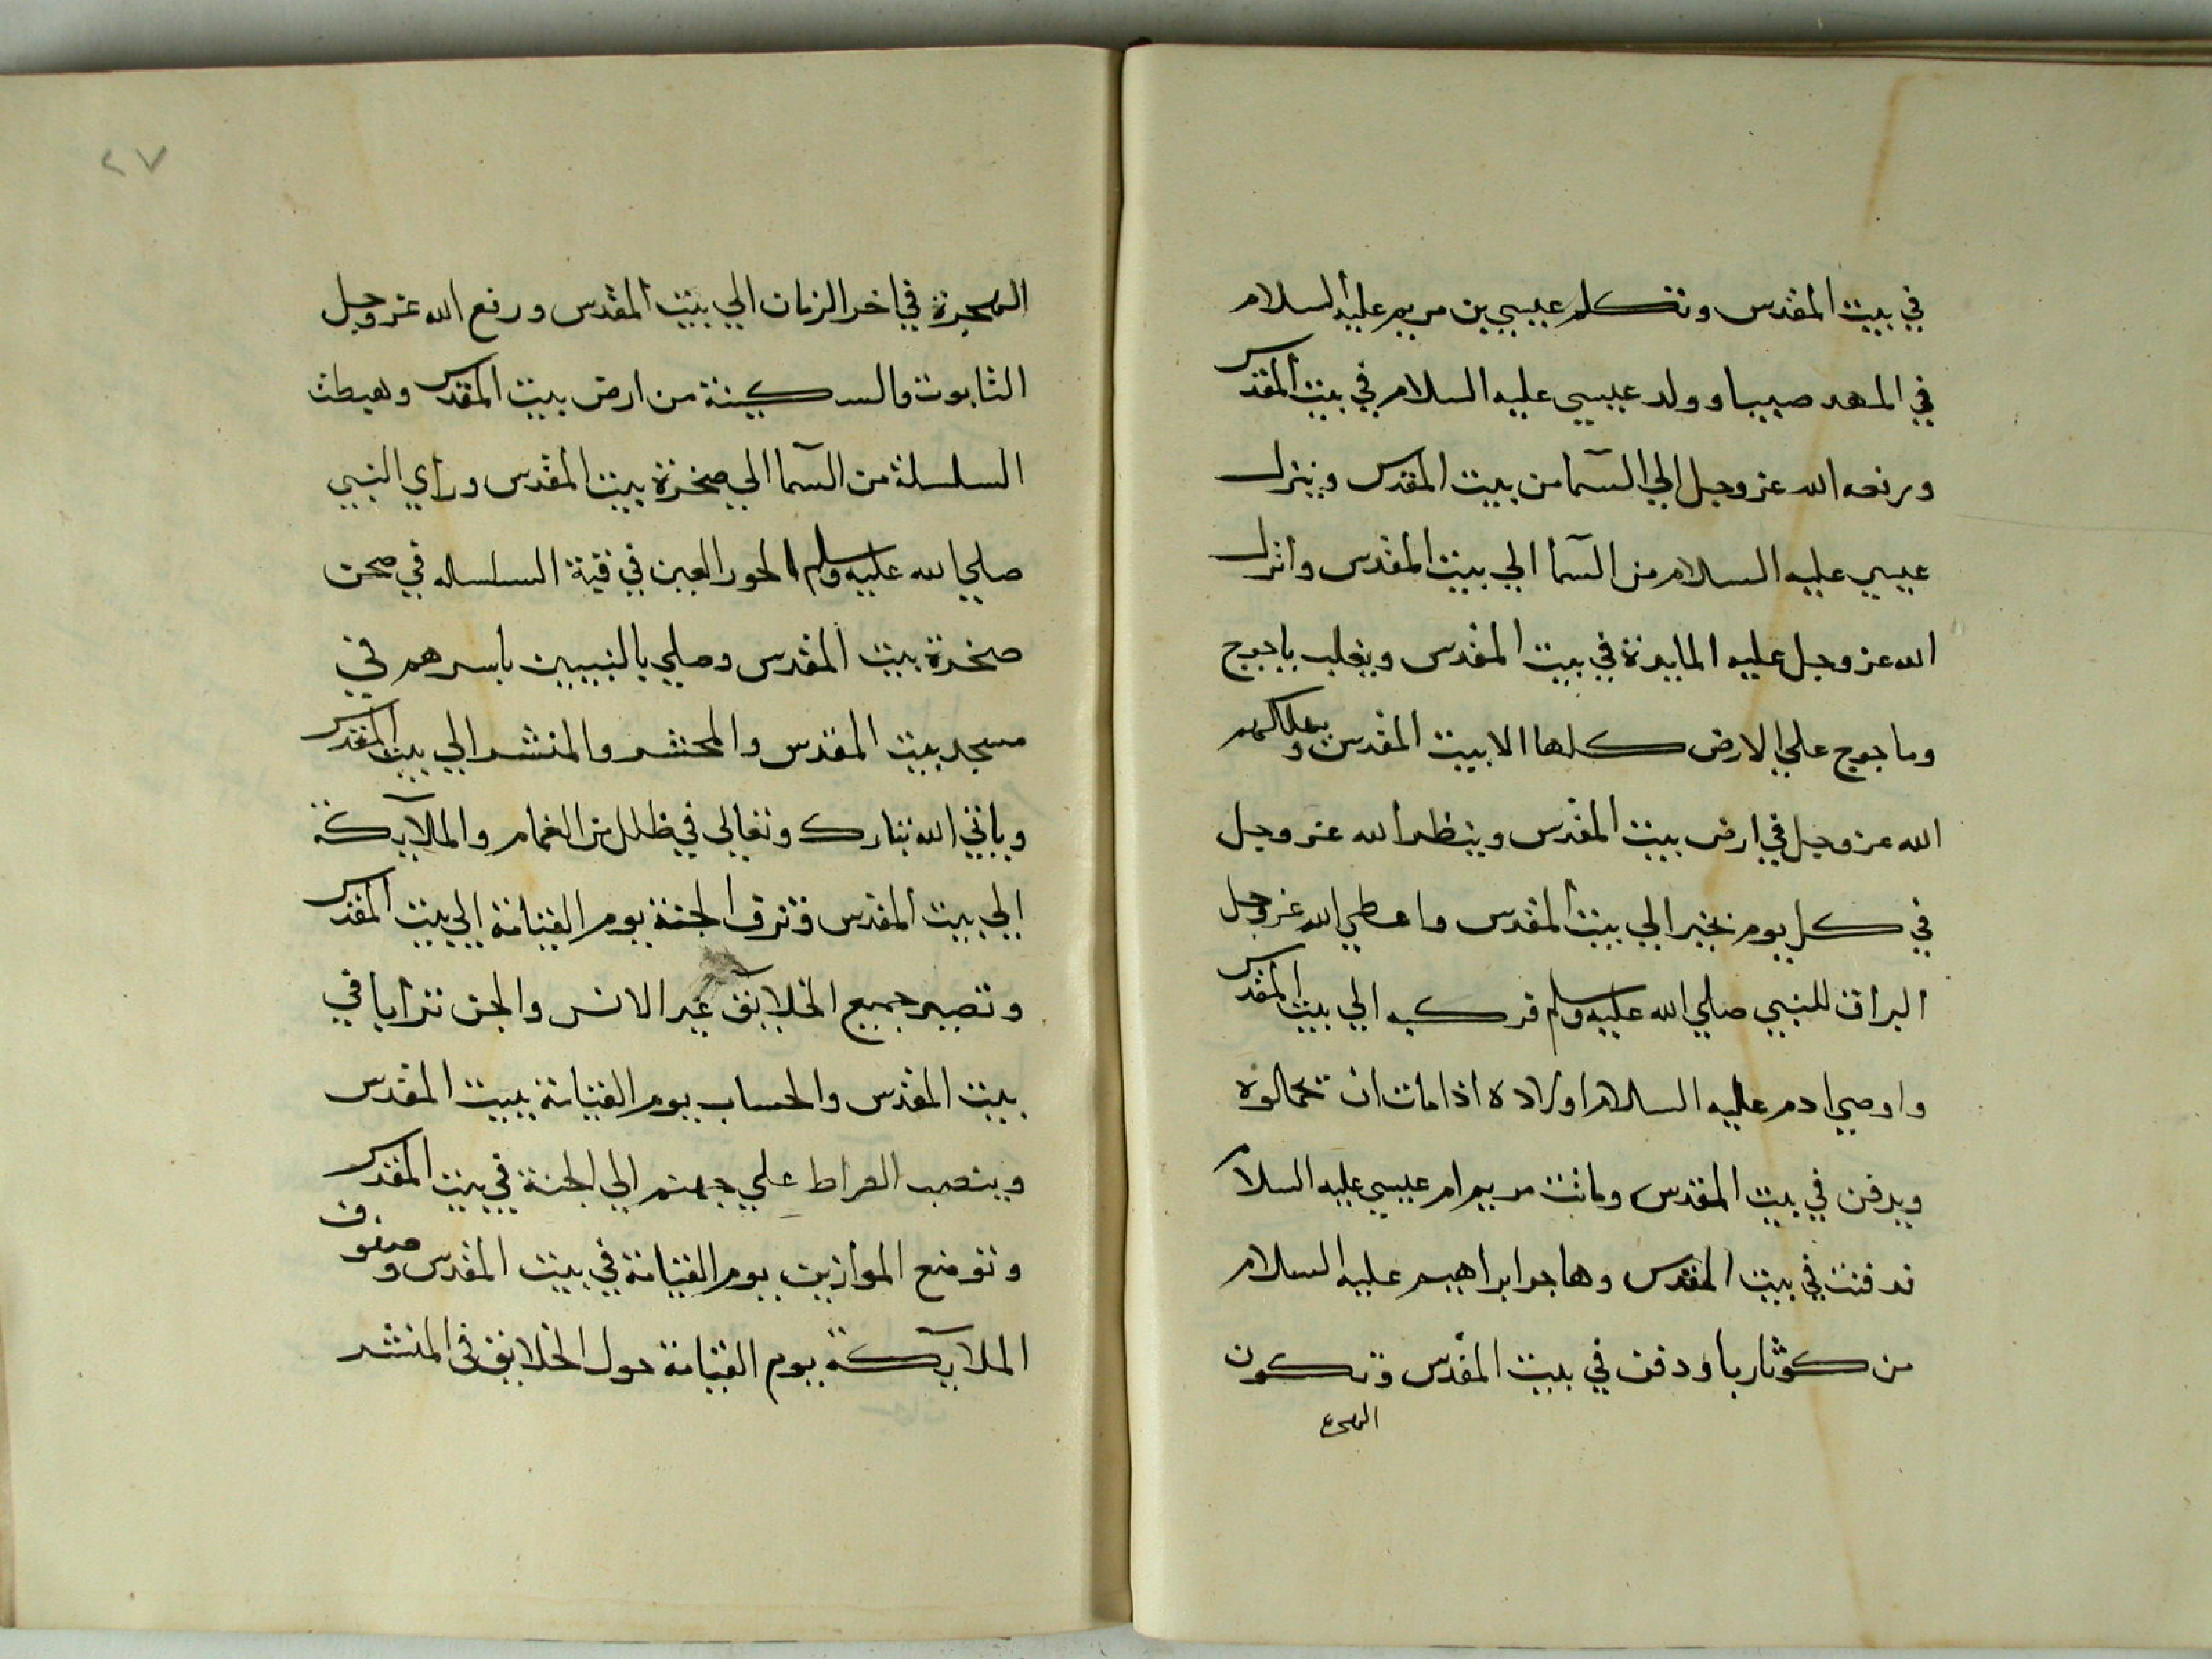 في بيت المقدس وتكلم عيسي بن مريم عليه السلام
في المهد صبيا وولد عيسي عليه السلام في بيت المقدس
ورفعه الله عز وجل الي السما من بيت المقدس وينزل
عيسي عليه السلام من السما الي بيت المقدس وانزل
الله عز وجل عليه المايدة في بيت المقدس ويغلب ياجوج
وماجوج علي الارض كلها الا بيت المقدس ويهلكهم
الله عز وجل في ارض بيت المقدس وينظر الله عز وجل
في كل يوم بخير الي بيت المقدس واعطي الله عز وجل
البراق للنبي صلي الله عليه وسلم فركبه الي بيت المقدس
واوصي ادم عليه السلام اولاده اذا مات ان تحملوه
ويدفن في بيت المقدس وماتت مريم ام عيسي عليه السلام
فدفنت في بيت المقدس وهاجر ابراهيم عليه السلام
من كوثاربا ودفن في بيت المقدس وتكون
الهجرة
٢٧
الهجرة في اخر الزمان الي بيت المقدس ورفع الله عز وجل
التابوت والسكينة من ارض بيت المقدس وهبطت
السلسلة من السما الي صخرة بيت المقدس وراي النبي
صلي الله عليه وسلم الحور العين في قبة السلسله في صحن
صخرة بيت المقدس وصلي بالنبيين باسرهم في
مسجد بيت المقدس والمحشر والمنشر الي بيت المقدس
وياتي الله تبارك وتعالي في ظلل من الغمام والملايكة
الي بيت المقدس وتزف الجنة يوم القيامة الي بيت المقدس
وتصير جميع الخلايق غير الانس والجن ترابا في
بيت المقدس والحساب يوم القيامة ببيت المقدس
وينصب الصراط علي جهنم الي الجنة في بيت المقدس
وتوضع الموازين يوم القيامة في بيت المقدس وصفوف
الملايكة يوم القيامة حول الخلايق في المنشر